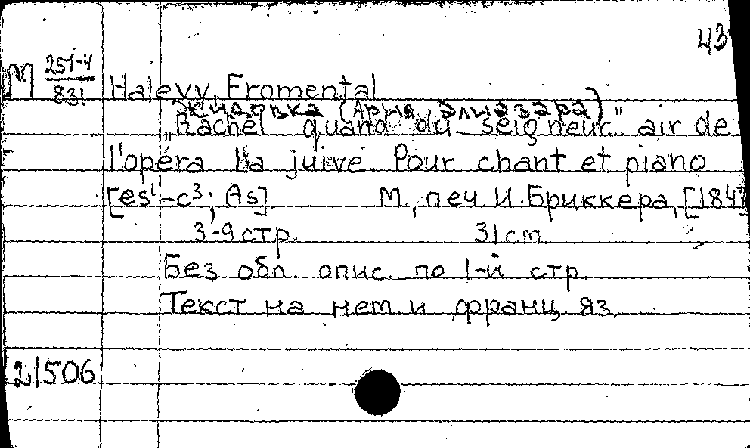 43
М 251-4/831 Halevy Fromental
Жидовка (Ария Элиазара)
"Rachel quand du seigneur" air de
l'opéra La juive Pour chant et piano
[es¹-c³; As] М., печ. И. Бриккера, [184
3-9 стр. 31 cm
Без обл. опис. по 1-й стр.
Текст на нем. и франц. яз.
21506